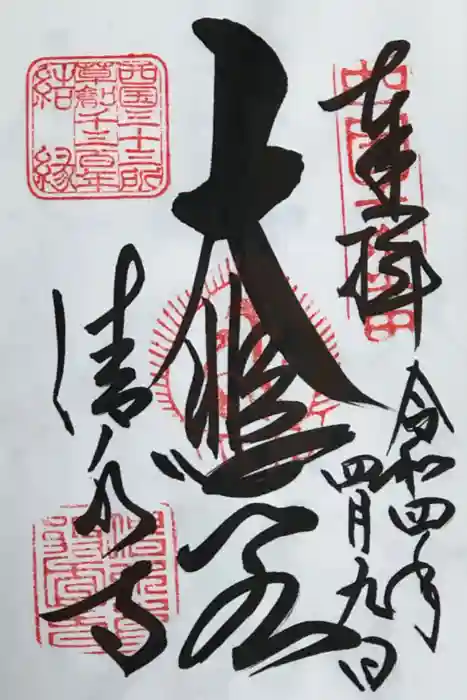 奉拝
令和四年
四月九日
大悲閣
清水寺
西国三十三所
草創千三百年
結縁